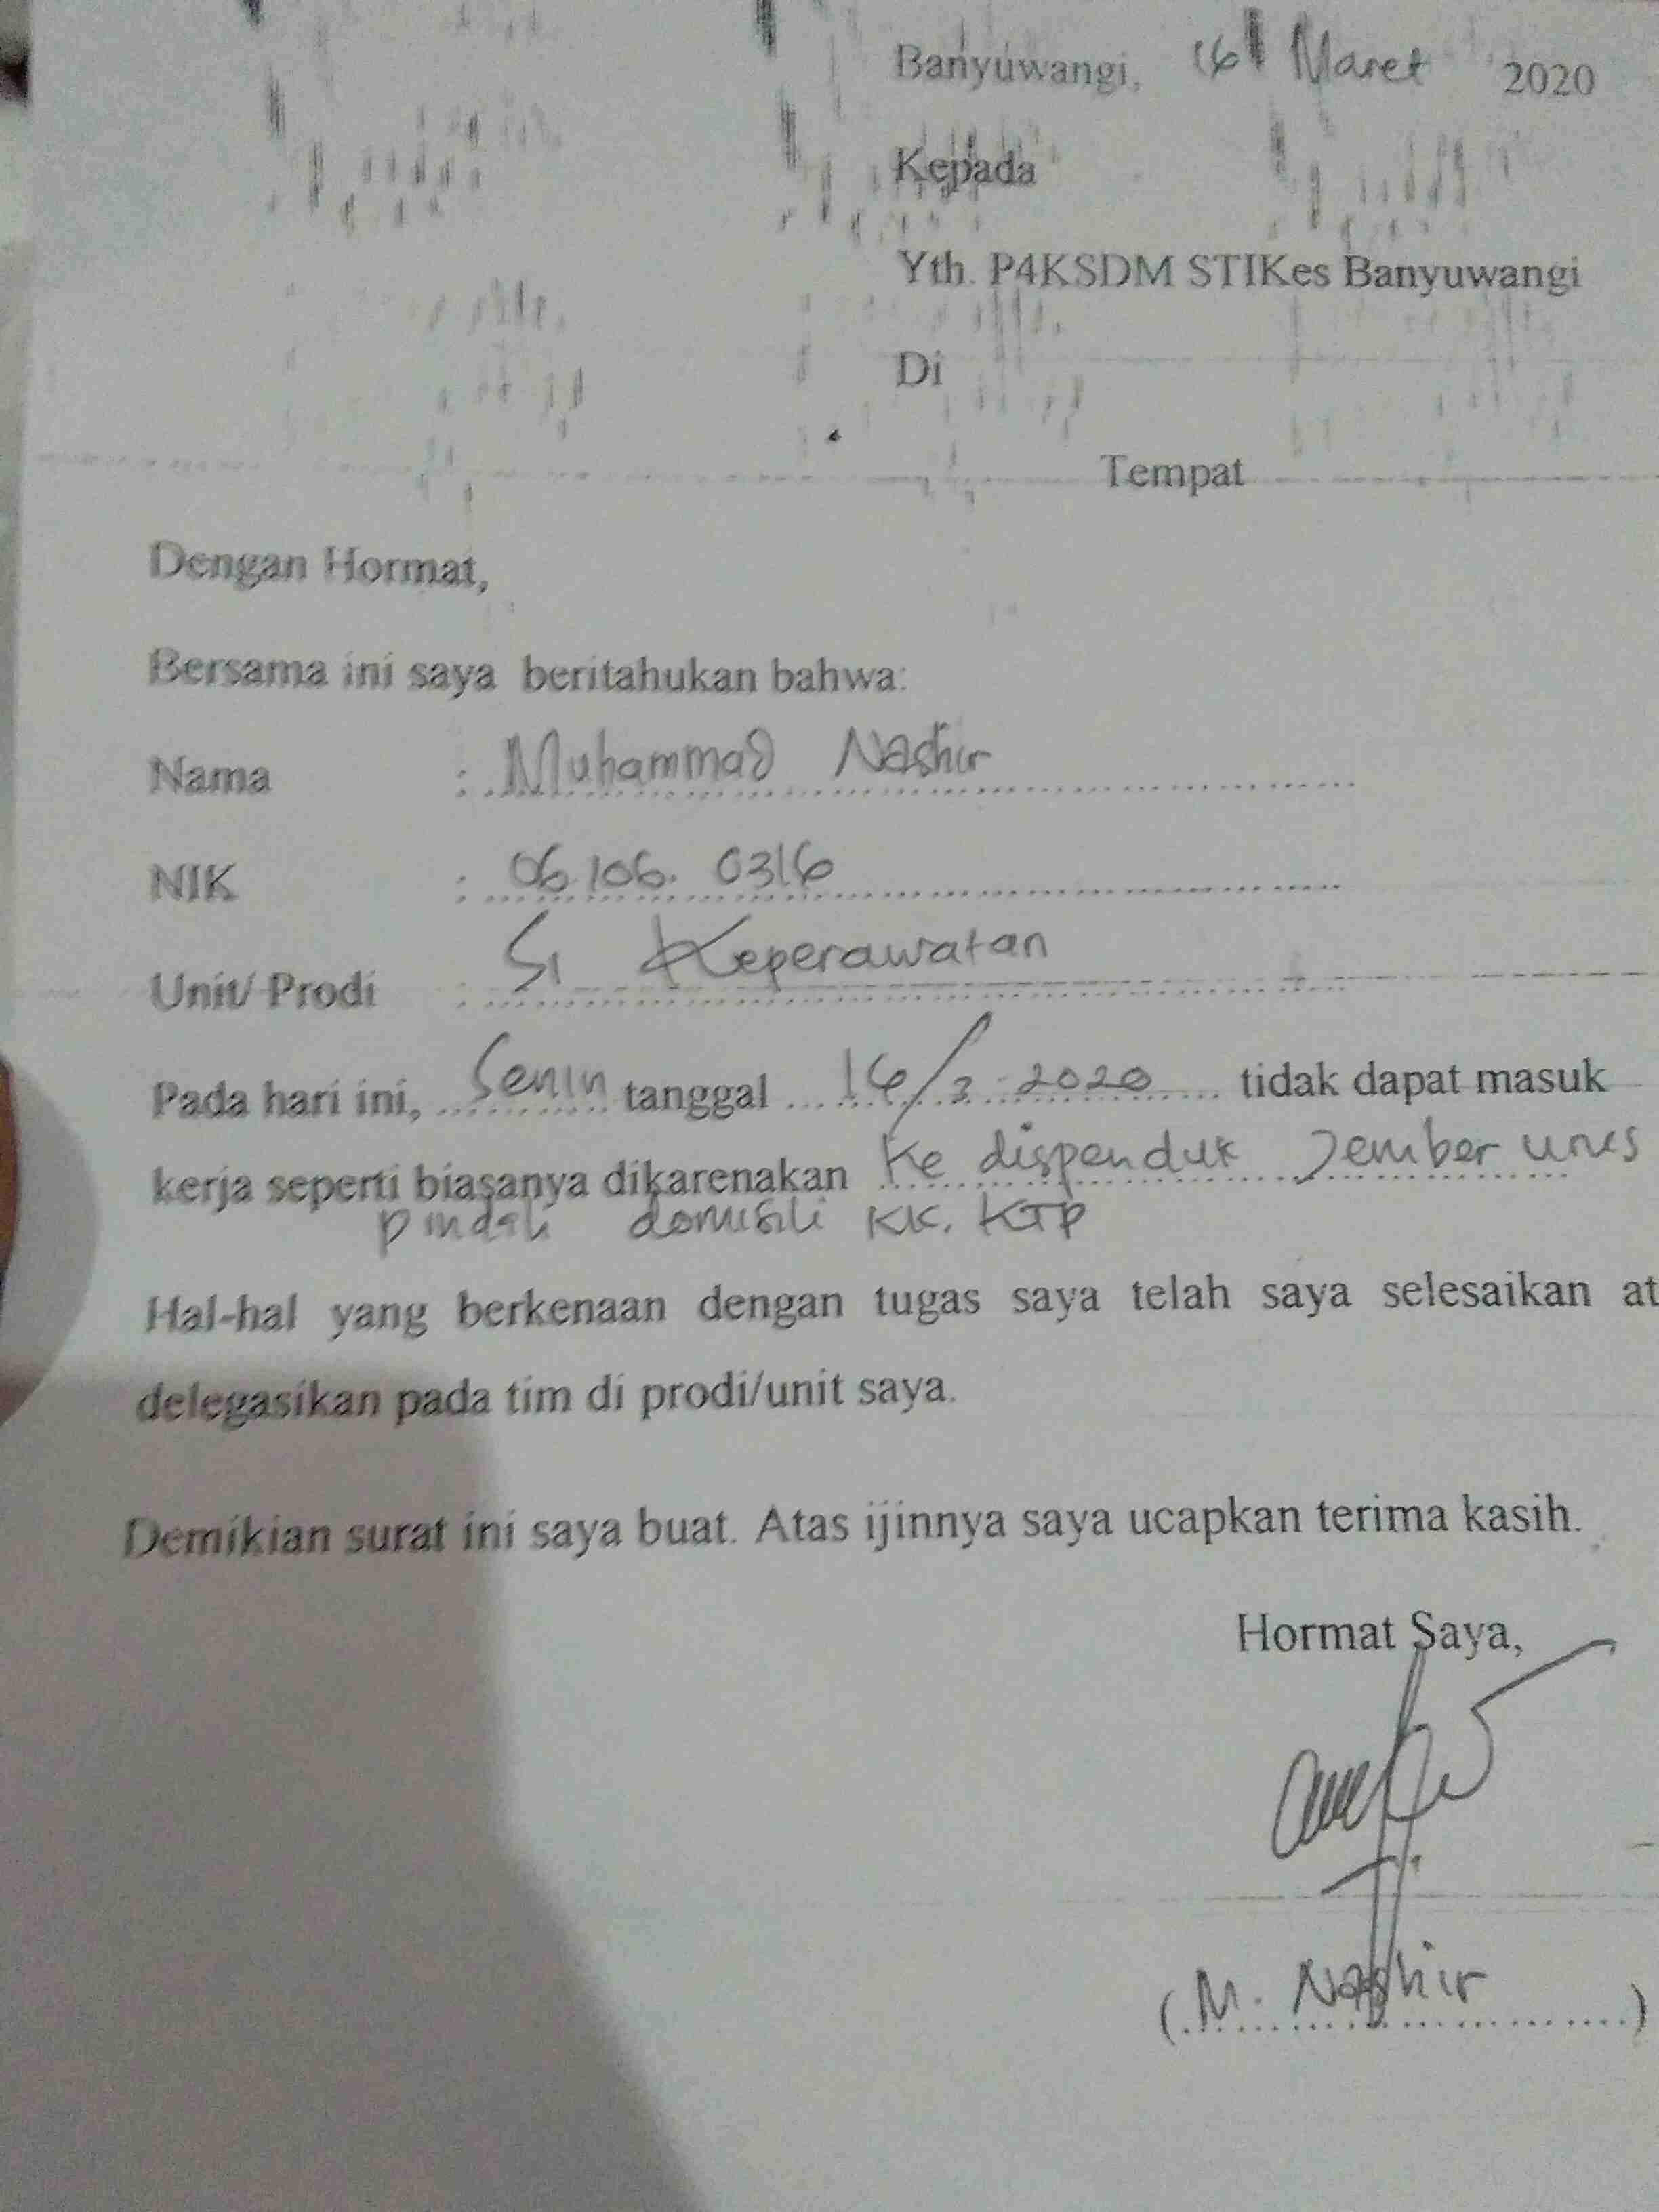 Banyuwangi, 16 Maret 2020
Kepada
Yth. P4KSDM STIKes Banyuwangi
Di
Tempat
Dengan Hormat,
Bersama ini saya beritahukan bahwa:
Nama : Muhammad Nashir
NIK : 06.106. 0316
Unit/ Prodi : S1 Keperawatan
Pada hari ini, Senin tanggal 16/3-2020 tidak dapat masuk
kerja seperti biasanya dikarenakan Ke dispenduk Jember urus
pindah domisili KK. KTP
Hal-hal yang berkenaan dengan tugas saya telah saya selesaikan at
delegasikan pada tim di prodi/unit saya.
Demikian surat ini saya buat. Atas ijinnya saya ucapkan terima kasih.
Hormat Saya,
(M. Nashir)